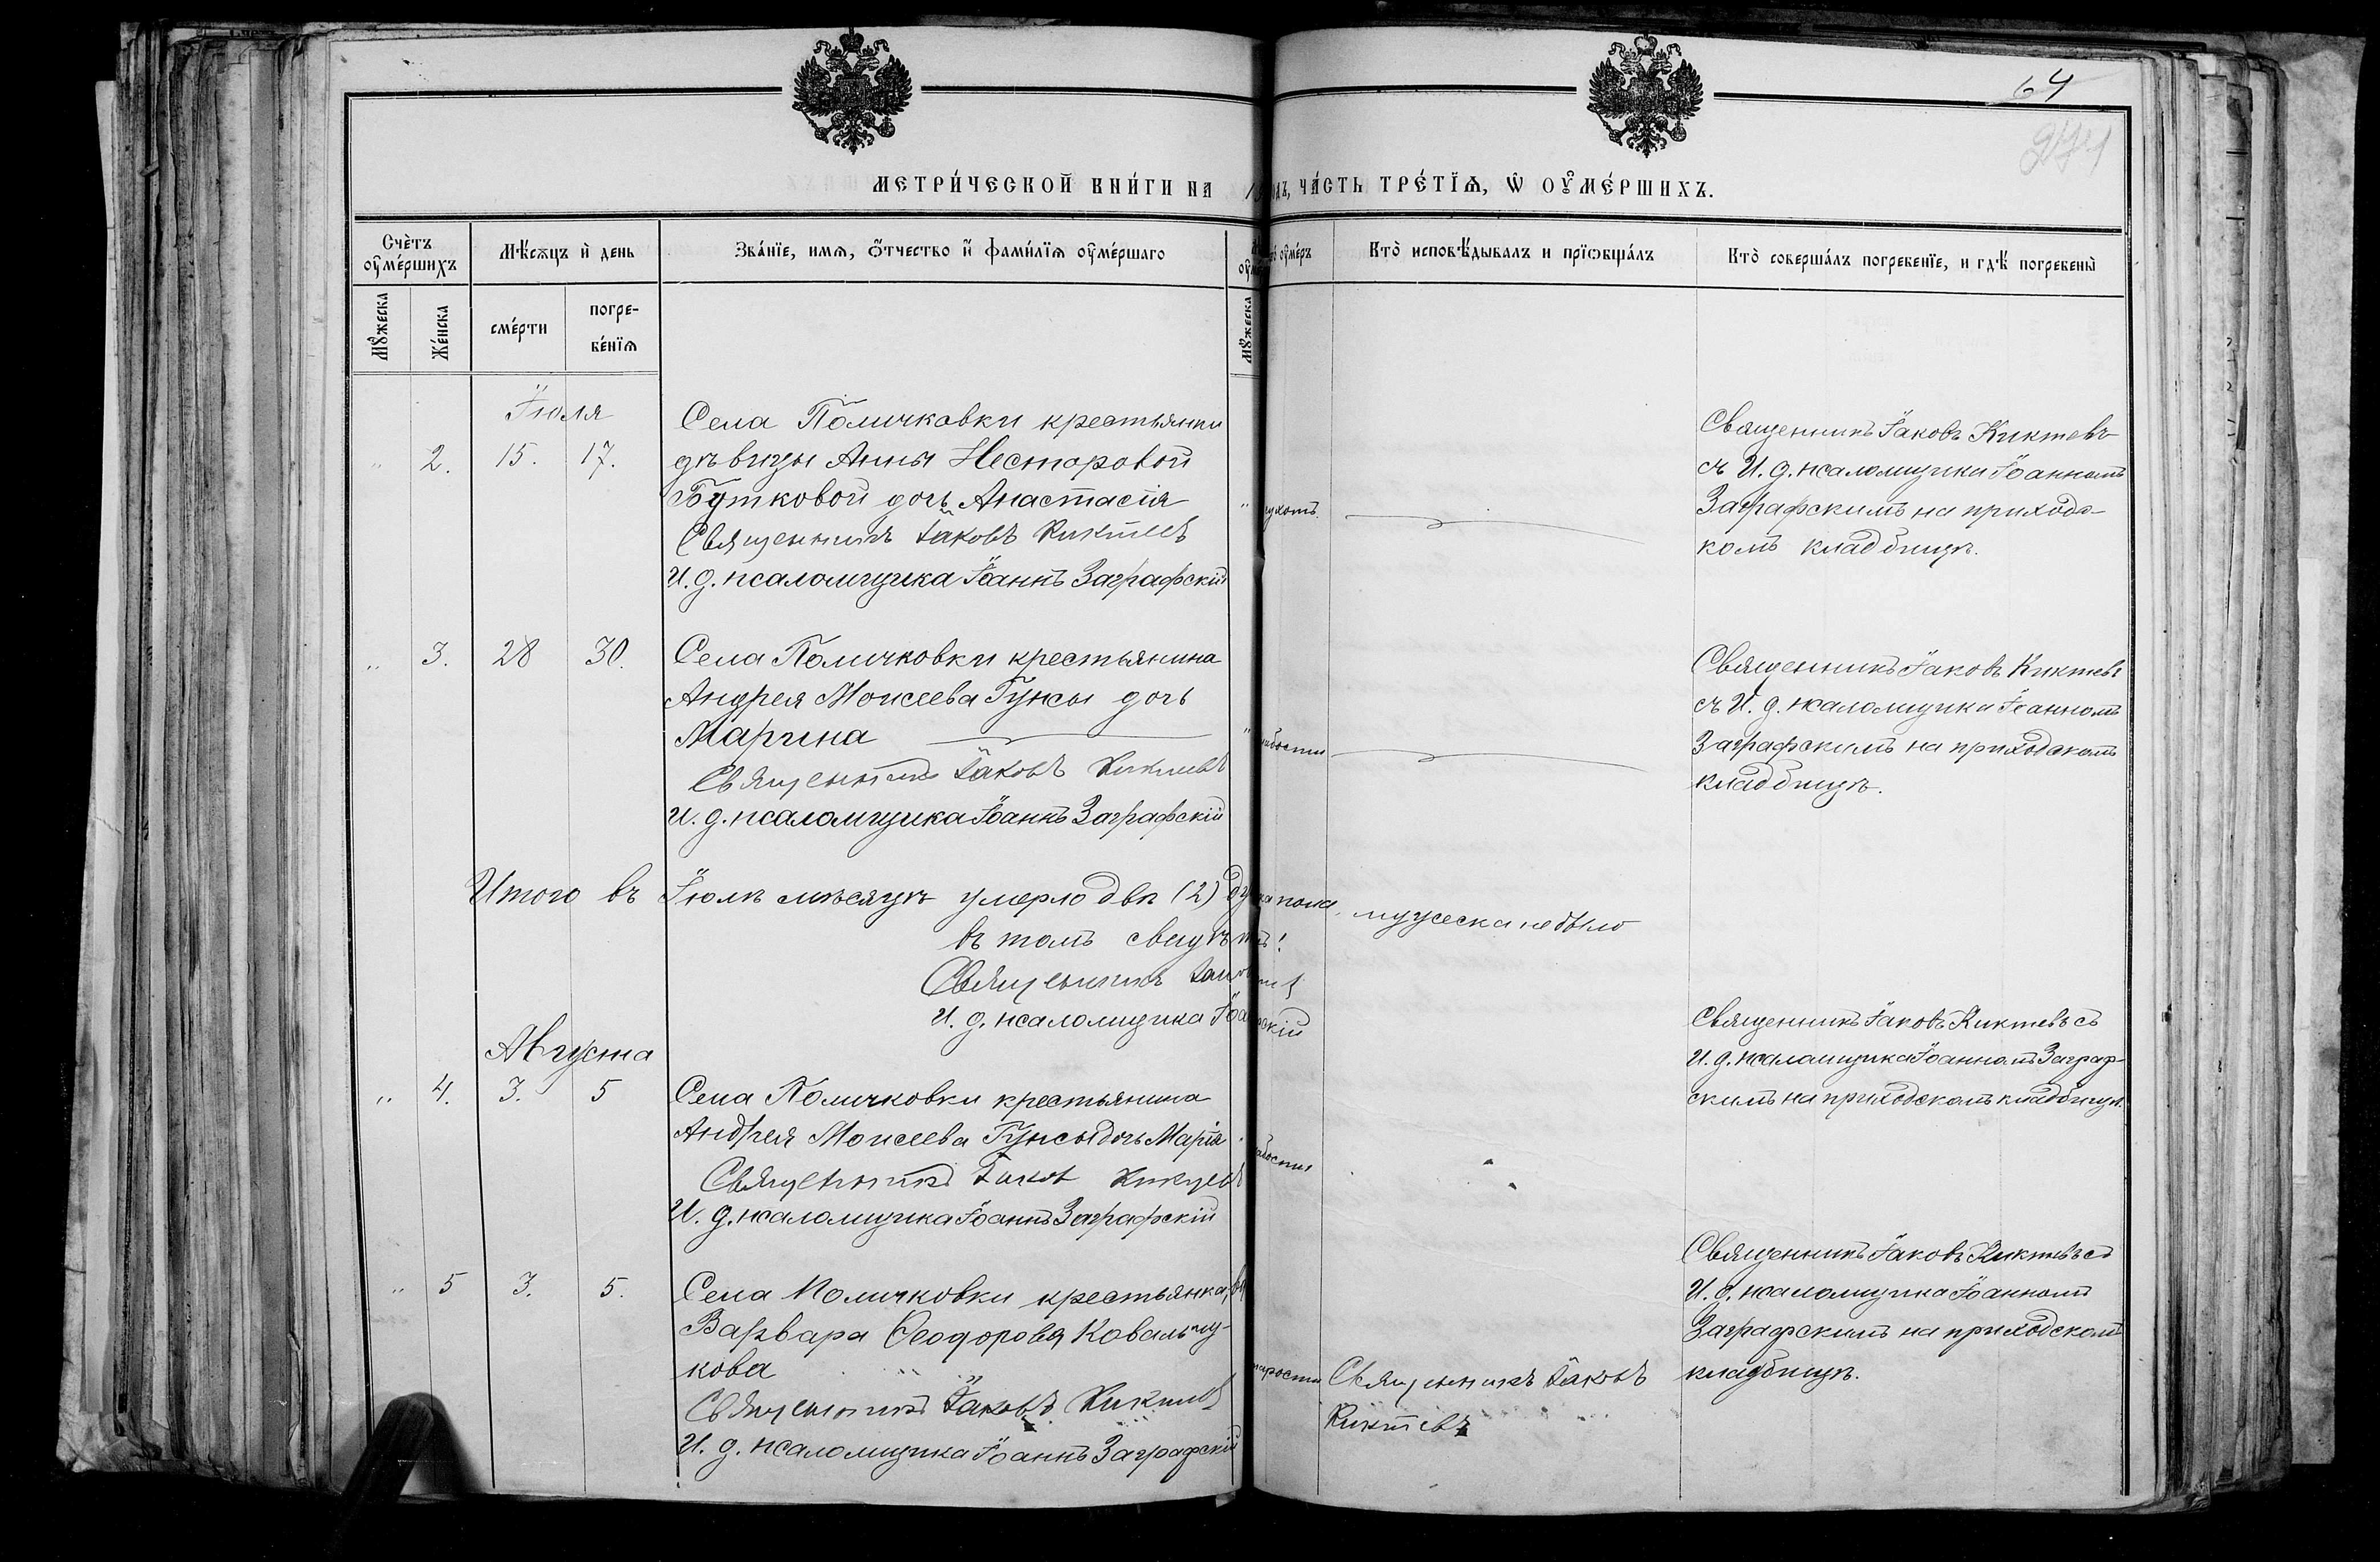 64
274
МЕТРИ́ЧЕСКОЙ КНИ́ГИ НА 1 ЧА́СТЬ ТРЕ́ТЇѦ, Ѡ҆ ОУ҆МЕ́РШИХЪ.
Счѐтъ оу҆ме́ршихъ
Мѣ́сѧцъ и҆ день
Зва́нїе, имѧ, ѻ҆́тчество и҆ фами́лїѧ оу҆ме́ршаго
оу҆ме́ръ
Кто̀ исповѣ́дывалъ и прїѡбща́лъ
Кто̀ соверша́лъ погребенїе, и гдѣ́ погребены̀
Мꙋ́жеска
Же́нска
сме́рти
погре-
бе́нїѧ
Мꙋ́жеска
Іюля
„ 2. 15. 17.
Села Поличковки крестьянки
дѣвицы Анны Несторовой
Бутковой дочь Анастасія
Священникъ Іаковъ Киктевъ
И. д. псаломщика Іоаннъ Заграфскій
Священникъ Іаковъ Киктевъ
съ И. д. псаломщика Іоанномъ
Заграфскимъ на приходс-
комъ кладбищѣ.
„ 3. 28 30.
Села Поличковки крестьянина
Андрея Моисеева Гунсы дочь
Марина
Священникъ Іаковъ Киктевъ
И. д. псаломщика Іоаннъ Заграфскій
Священникъ Іаковъ Киктевъ
съ И. д. псаломщика Іоанномъ
Заграфскимъ на приходскомъ
кладбищѣ.
Итого въ Іюлѣ мѣсяцѣ умерло двѣ (2) пола, мужеска не было
въ томъ
Священникъ
И. д. псаломщика
Августа
„ 4. 3. 5
Села Поличковки крестьянина
Андрея Моисеева Гунсы дочь Марія
Священникъ Іаковъ Киктевъ
И. д. псаломщика Іоаннъ Заграфскій
Священникъ Іаковъ Киктевъ съ
И. д. псаломщика Іоанномъ Заграф-
скимъ на приходскомъ кладбищѣ.
„ 5 3. 5.
Села Поличковки крестьянка
Варвара Ѳеодорова Ковальчу-
кова
Священникъ Іаковъ Киктевъ
И. д. псаломщика Іоаннъ Заграфскій
Священникъ Іаковъ
Киктевъ
Священникъ Іаковъ Киктевъ съ
И. д. псаломщика Іоанномъ
Заграфскимъ на приходскомъ
кладбищѣ.